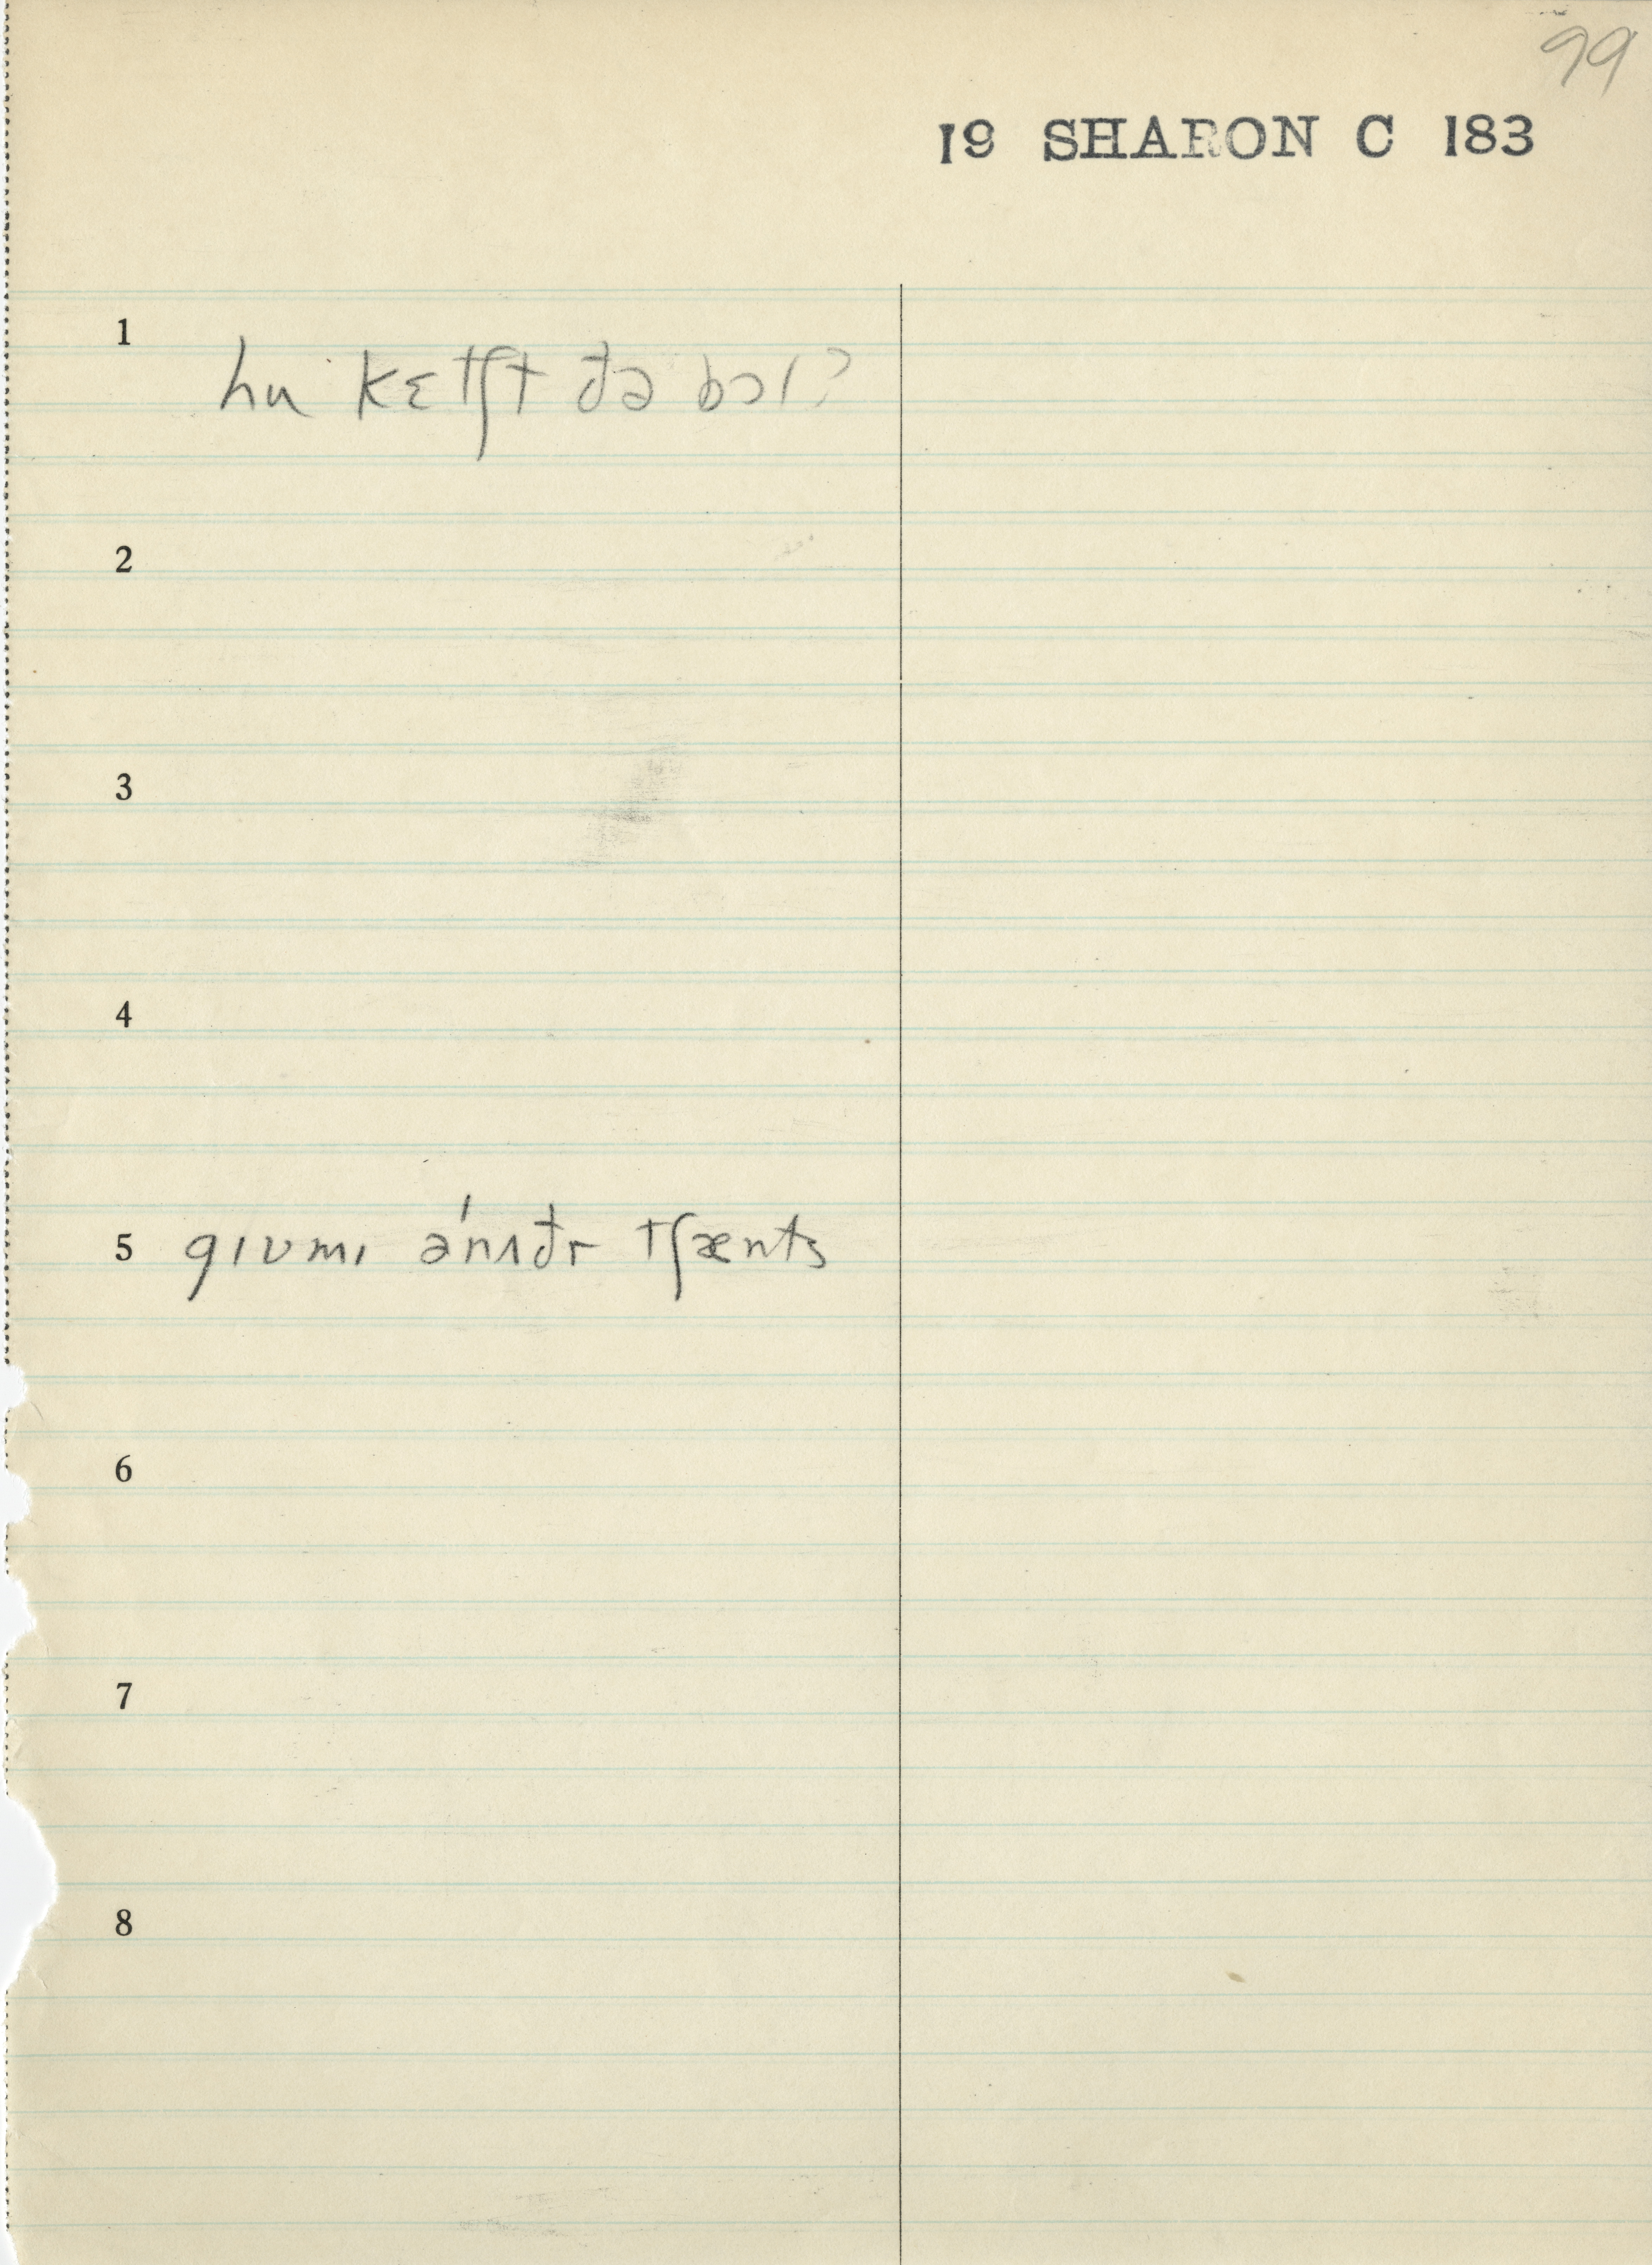 99
19 SHARON C 183
1 hu kɛtʃt ðə bɔl?
2
3
4
5 gɪvmɪ ə'nʌðr tʃænts
6
7
8